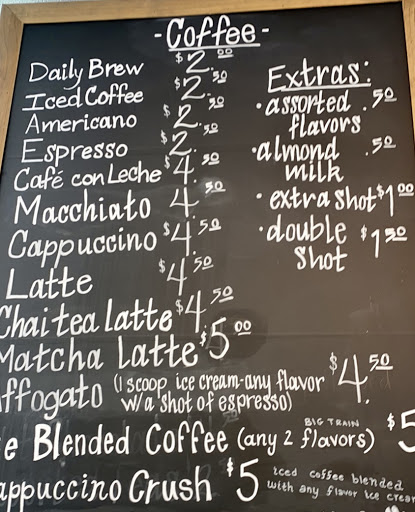 - Coffee -
Daily Brew $2.00
Iced Coffee $2.50
Americano $2.50
Espresso $2.50
Café con Leche $4.50
Macchiato 4.50
Cappuccino $4.50
Latte $4.50
Chai tea latte $4.50
Matcha Latte $5.00
ffogato (1 scoop ice cream-any flavor w/a shot of espresso) $4.50
e Blended Coffee (any 2 flavors) BIG TRAIN $5
appuccino Crush $5 iced coffee blended
with any flavor ice crea
Extras:
• assorted .50
flavors
• almond .50
milk
• extra shot $1.00
• double $1.50
shot